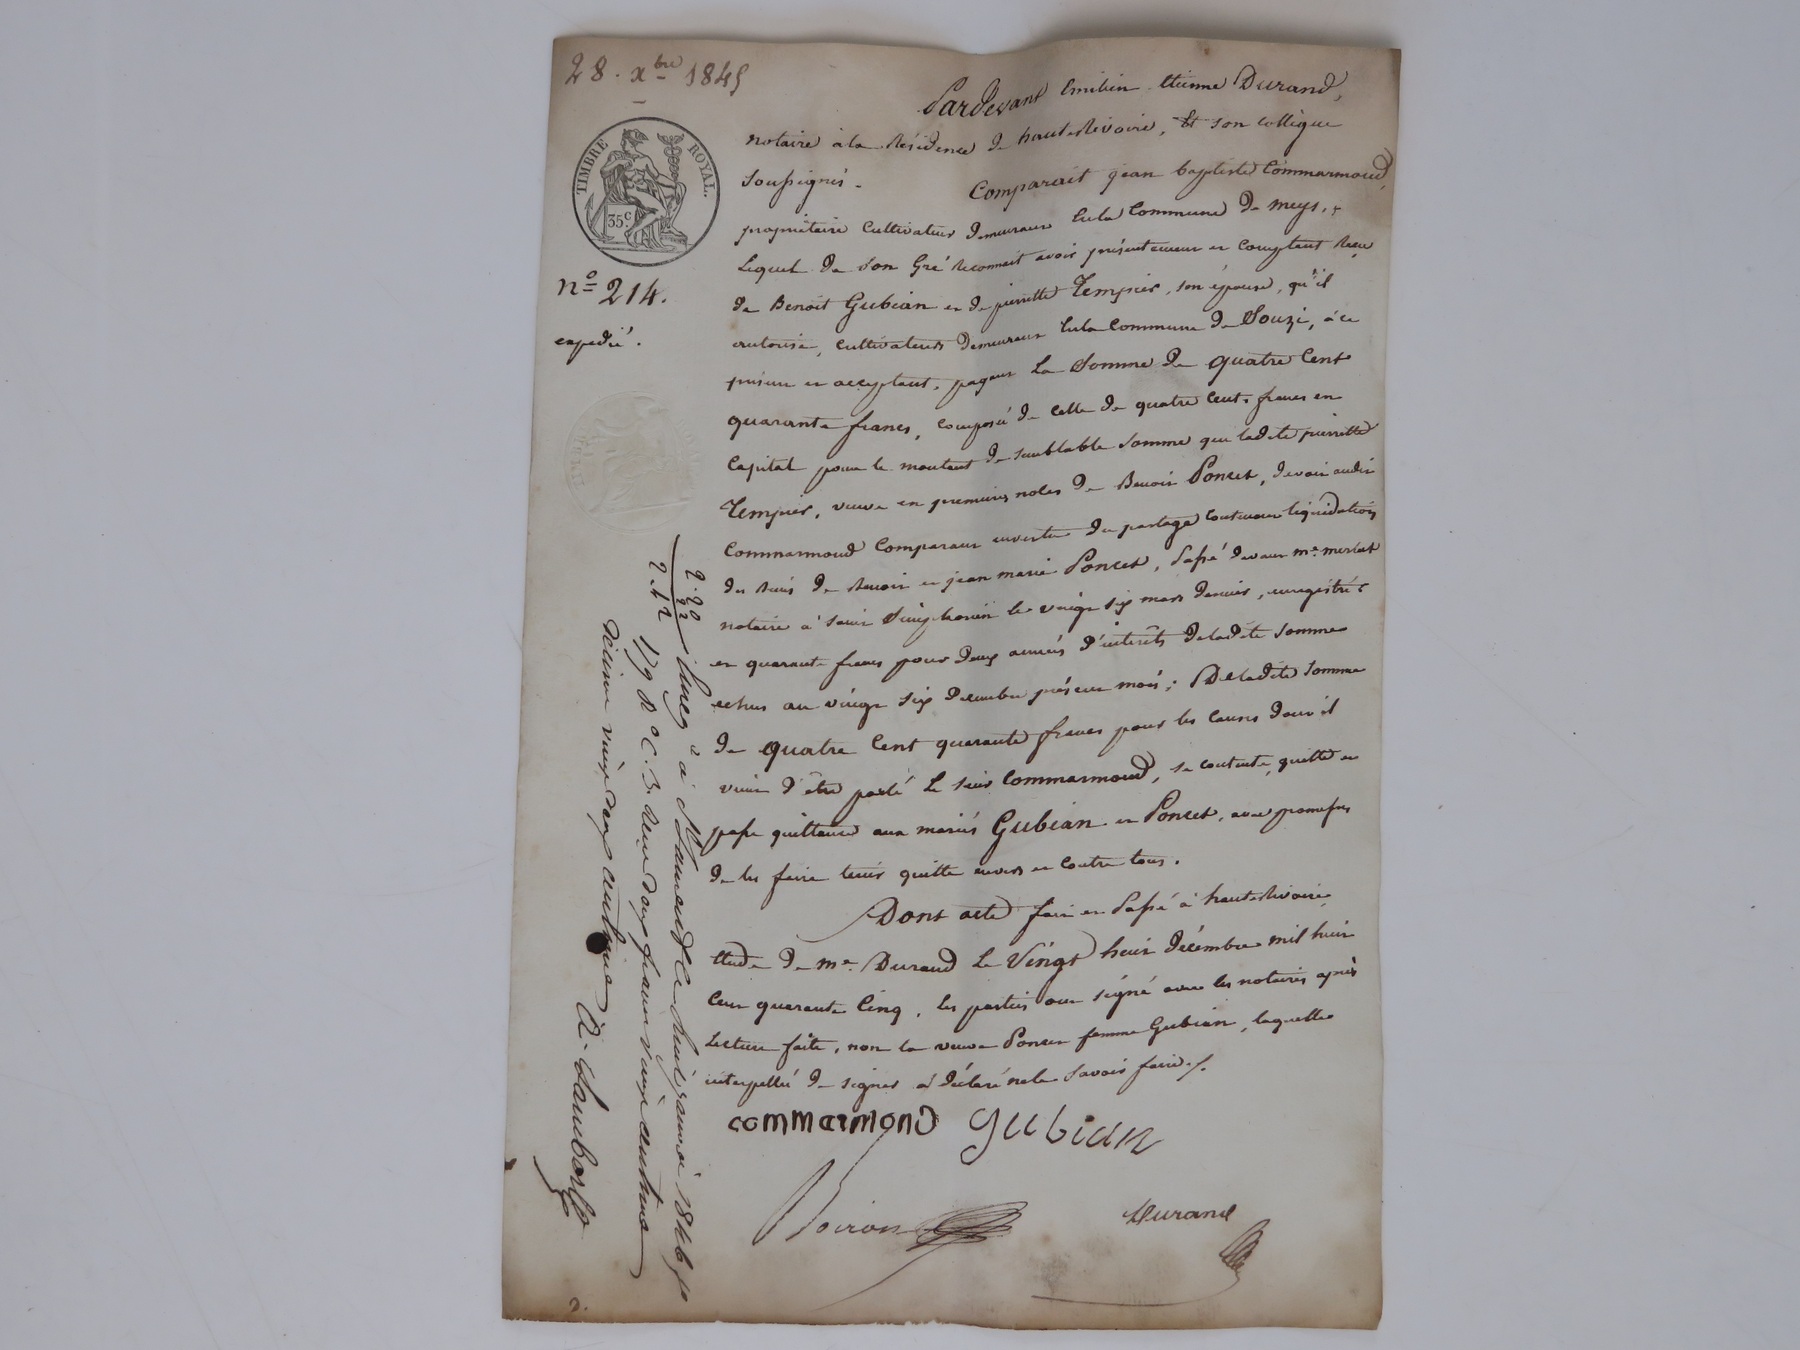 28. xbre 1845
TIMBRE ROYAL.
35c.
no 214.
expédié.
Pardevant Emilien Etienne Durand,
notaire à la Résidence de hauterivoire, Et son collègue
Soussignés.
Comparait jean baptiste Commarmond,
propriétaire Cultivateur demeurant Enla Commune de meys,
Lequel de son Gré Reconnait avoir présentement et comptant Reçu
de Benoît Gubian et de pierrette Tempier, son épouse, qu'il
autorise, cultivateurs demeurant Enla Commune de Souzi, à ce
présent et acceptant, payant La Somme de quatre Cent
quarante francs, composé de Celle de quatre Cents francs en
Capital pour le montant de semblable Somme que ladite pierrette
Tempier, veuve en premières noces de Benoit Poncet, devait audit
Commarmond Comparant en vertu du partage Contenant liquidation
des biens de Benoit et jean marie Poncet, Passé devant me. merlat
notaire à Saint Simphorien le vingt six mars dernier, enregistré
et quarante francs pour deux années d'intérêts deladite Somme
echus au vingt six décembre présent mois; Deladite Somme
de quatre Cent quarante francs pour les Causes dont il
vient d'être parlé Le sieur Commarmond, se contente, quitte et
passe quittance aux mariés Gubian et Poncet, avec promesses
de les faire tenir quitte envers et Contre tous.
Dont acte fait et Passé à hauterivoire
Etude de me. Durand Le Vingt huit décembre mil huit
Cent quarante Cinq, les parties ont signé avec les notaires après
Lecture faite, non la veuve Poncet femme Gubian, laquelle
interpellée de signer a déclaré nele Savoir faire./.
commarmond Gubian
Boiron Durand
2.20
22
2.42
Enreg à St Laurent le huit janvier 1846 fo
179 Ro C. 3. Reçu deux francs vingt centimes
décime vingt deux centimes